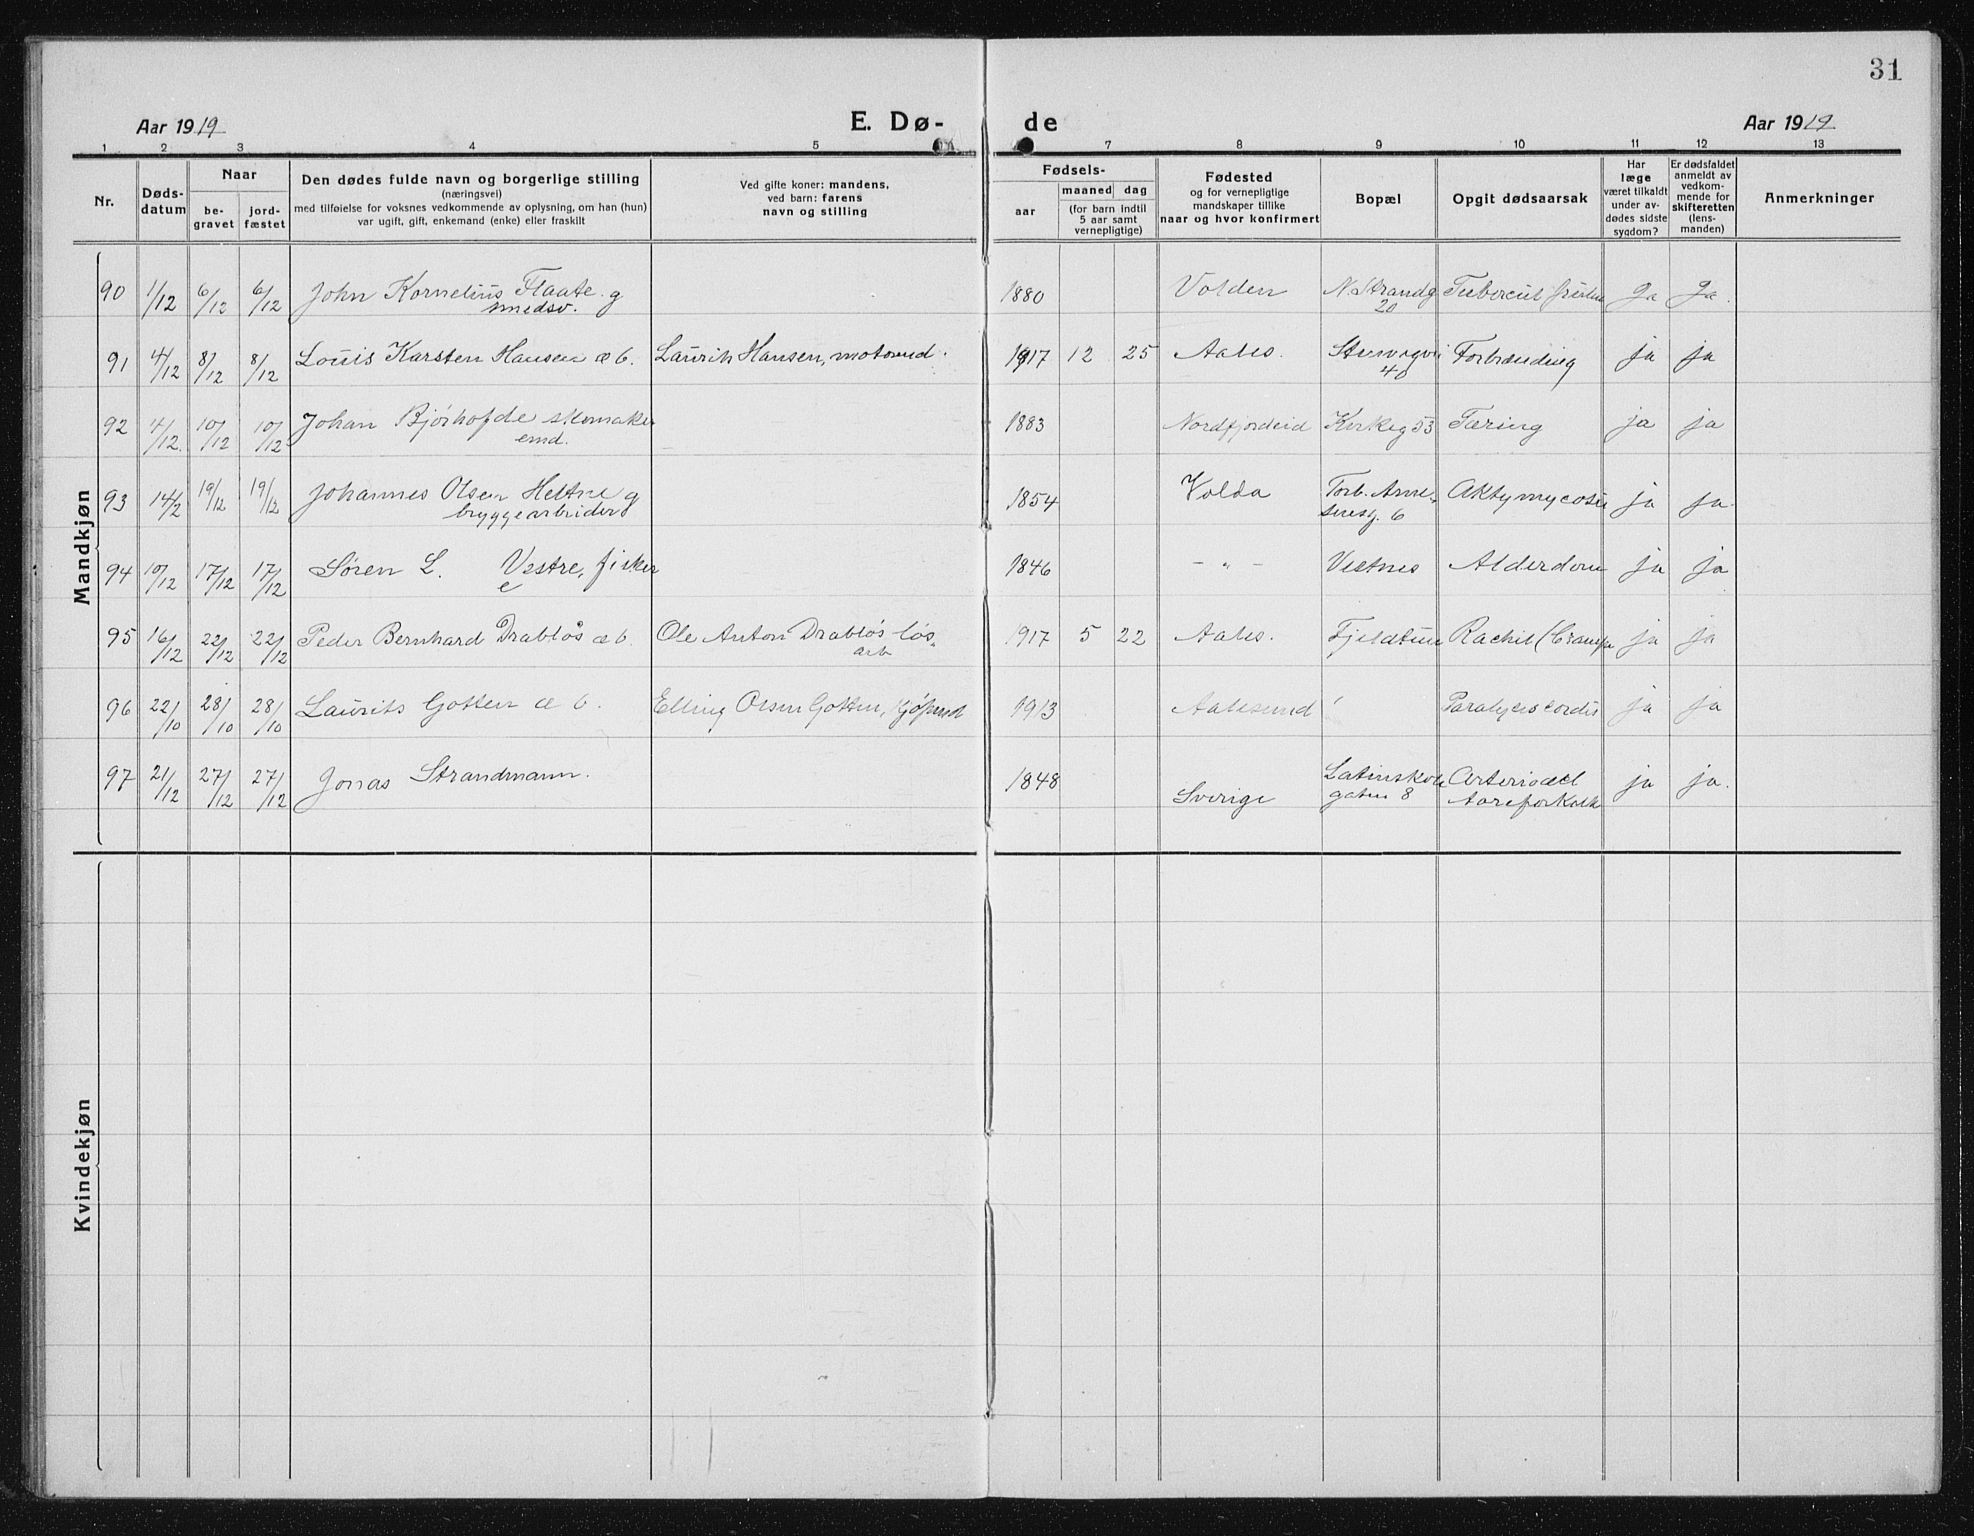 31
Aar 1919 E. Dø- de Aar 1919
1 2 3 4 5 7 8 9 10 11 12 13
Nr.
Døds-
datum
Naar
be-
gravet
jord-
fæstet
Den dødes fulde navn og borgerlige stilling
(næringsvei)
med tilføielse for voksnes vedkommende av oplysning, om han (hun)
var ugift, gift, enkemand (enke) eller fraskilt
Ved gifte koner: mandens,
ved barn: farens
navn og stilling
Fødsels-
aar
maaned dag
(for barn indtil
5 aar samt
vernepligtige)
Fødested
og for vernepligtige
mandskaper tillike
naar og hvor konfirmert
Bopæl
Opgit dødsaarsak
Har
læge
været tilkaldt
under av-
dødes sidste
sygdom?
Er dødsfaldet
anmeldt av
vedkom-
mende for
skifteretten
(lens-
manden)
Anmerkninger
Mandkjøn
90 1/12 6/12 6/12 John Kornelius Flaate g 1880 Volden N. Strandg Tubercul Ja Ja.
smedsv. 20
91 4/12 8/12 8/12 Louis Karsten Hansen æ b. Laurits Hansen, motorud. 1917 12 25 Aales. Forbrænding ja ja
40
92 4/12. 10/12 10/12 Johan Bjørhofde skomaker 1883 Nordfjordeid Kirkeg 53 Tæring ja ja
emd.
93 14/2 19/12 19/12 Johannes Olsen Heltne g 1854 Volda Torb. Arne- Aktymycotis ja ja.
bryggearbrider 6
94 10/12 17/12 17/12 Søren L. Vestre, fisker 1846 - " - Vestnes Alderdom ja ja
e
95 16/12 22/12 22/12 Peder Bernhard Drabløs æ b. Ole Anton Drabløs løs 1917 5 22 Aales. Fjeldtun Rachit (Crampe ja ja
arb
96 22/10 28/10 28/10 Laurits Gotten æ b. Elling Olsen Gotten, kjøpmd 1913 Aalesund Paralysis cordis ja ja
97 21/12 27/12 27/12 Jonas Strandmann. 1848 Sverige Latinskole ja ja.
gaten 8 Aareforkalk
Kvindekjøn